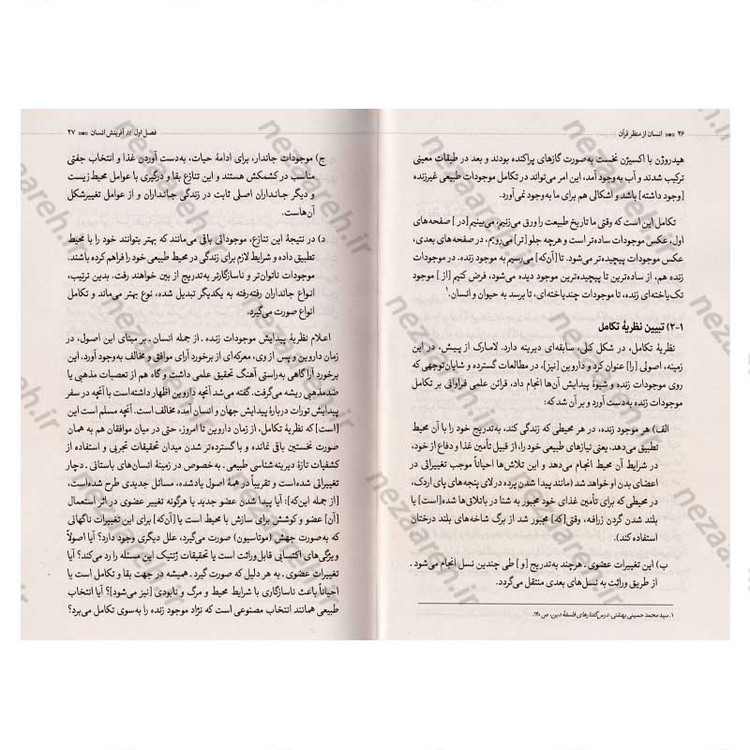 ۲۶ انسان از منظر قرآن
هیدروژن با اکسیژن نخست به‌صورت گازهای پراکنده بودند و بعد در طبقات معینی
ترکیب شدند و آب به‌وجود آمد، این امر می‌تواند در تکامل موجودات طبیعی غیرزنده
[وجود داشته] باشد و اشکالی هم برای ما به‌وجود نمی‌آورد.
تکامل این است که وقتی ما تاریخ طبیعت را ورق می‌زنیم، می‌بینیم [در] صفحه‌های
اول، عکس موجودات ساده‌تر است و هرچه جلو [تر] می‌رویم، در صفحه‌های بعدی،
عکس موجودات پیچیده‌تر می‌شود. تا [آن‌که] می‌رسیم به موجود زنده. در موجودات
زنده هم، از ساده‌ترین تا پیچیده‌ترین موجود دیده می‌شود، فرض کنیم [از] موجود
تک‌یاخته‌ای زنده، تا موجودات چندیاخته‌ای، تا برسد به حیوان و انسان.۱
۱-۲) تبیین نظریهٔ تکامل
نظریهٔ تکامل، در شکل کلی، سابقه‌ای دیرینه دارد. لامارک از پیش، در این
زمینه، اصولی [را] عنوان کرد و داروین [نیز]، در مطالعات گسترده و شایان‌توجهی که
روی موجودات زنده و شیوهٔ پیدایش آن‌ها انجام داد، قرائن علمی فراوانی بر تکامل
موجودات زنده به‌دست آورد و بر آن شد که:
الف) هر موجود زنده، در هر محیطی که زندگی کند، به‌تدریج خود را با آن محیط
تطبیق می‌دهد، یعنی نیازهای طبیعی خود را، از قبیل تأمین غذا و دفاع از خود،
در شرایط آن محیط انجام می‌دهد و این تلاش‌ها احیاناً موجب تغییراتی در
اعضای بدن او خواهد شد (مانند پیدا شدن پرده در لای پنجه‌های پای اردک،
در محیطی که برای تأمین غذای خود مجبور به شنا در باتلاق‌ها شده [است] یا
بلند شدن گردن زرافه، وقتی [که] مجبور شد از برگ شاخه‌های بلند درختان
استفاده کند).
ب) این تغییرات عضوی ـ هرچند به‌تدریج [و] طی چندین نسل انجام می‌شود ـ
از طریق وراثت به نسل‌های بعدی منتقل می‌گردد.
۱. سید محمد حسینی بهشتی، درس‌گفتارهای فلسفهٔ دین، ص ۱۴۰.
فصل اول // آفرینش انسان ۲۷
ج) موجودات جاندار، برای ادامهٔ حیات، به‌دست آوردن غذا و انتخاب جفتی
مناسب در کشمکش هستند و این تنازع بقا و درگیری با عوامل محیط زیست
و دیگر جانداران اصلی ثابت در زندگی جانداران و از عوامل تغییرشکل
آن‌هاست.
د) در نتیجهٔ این تنازع، موجوداتی باقی می‌مانند که بهتر بتوانند خود را با محیط
تطبیق داده و شرایط لازم برای زندگی در محیط طبیعی خود را فراهم کرده باشند.
موجودات ناتوان‌تر و ناسازگارتر به‌تدریج از بین خواهند رفت. بدین ترتیب،
انواع جانداران رفته‌رفته به یکدیگر تبدیل شده، نوع بهتر می‌ماند و تکامل
انواع صورت می‌گیرد.
اعلام نظریهٔ پیدایش موجودات زنده ـ از جمله انسان ـ بر مبنای این اصول، در
زمان داروین و پس از وی، معرکه‌ای از برخورد آرای موافق و مخالف به‌وجود آورد. این
برخورد آرا گاهی به‌راستی آهنگ تحقیق علمی داشت و گاه هم از تعصبات مذهبی یا
ضدمذهبی ریشه می‌گرفت. گفته می‌شد آنچه داروین اظهار داشته است با آنچه در سفر
پیدایش تورات دربارهٔ پیدایش جهان و انسان آمده مخالف است. آنچه مسلم است این
[است] که نظریهٔ تکامل، از زمان داروین تا امروز، حتی در میان موافقان هم به همان
صورت نخستین باقی نمانده و با گسترده‌تر شدن میدان تحقیقات تجربی و استفاده از
کشفیات تازهٔ دیرینه‌شناسی طبیعی ـ به خصوص در زمینهٔ انسان‌های باستانی ـ دچار
تغییراتی شده است و تقریباً در همهٔ اصول یادشده، مسائل جدیدی طرح شده‌است،
[از جمله این‌که]: آیا پیدا شدن عضو جدید یا هرگونه تغییر عضوی در اثر استعمال
[آن] عضو و کوشش برای سازش با محیط است یا [آن‌که] برای این تغییرات ناگهانی
که به‌صورت جهش (موتاسیون) صورت می‌گیرد، علل دیگری وجود دارد؟ آیا اصولاً
ویژگی‌های اکتسابی قابل‌وراثت است یا تحقیقات ژنتیک این مسئله را رد می‌کند؟ آیا
تغییرات عضوی ـ به هر دلیل که صورت گیرد ـ همیشه در جهت بقا و تکامل است یا
احیاناً باعث ناسازگاری با شرایط محیط و مرگ و نابودی [نیز می‌شود]؟ آیا انتخاب
طبیعی همانند انتخاب مصنوعی است که نژاد موجود زنده را به‌سوی تکامل می‌برد؟
nezaareh.ir